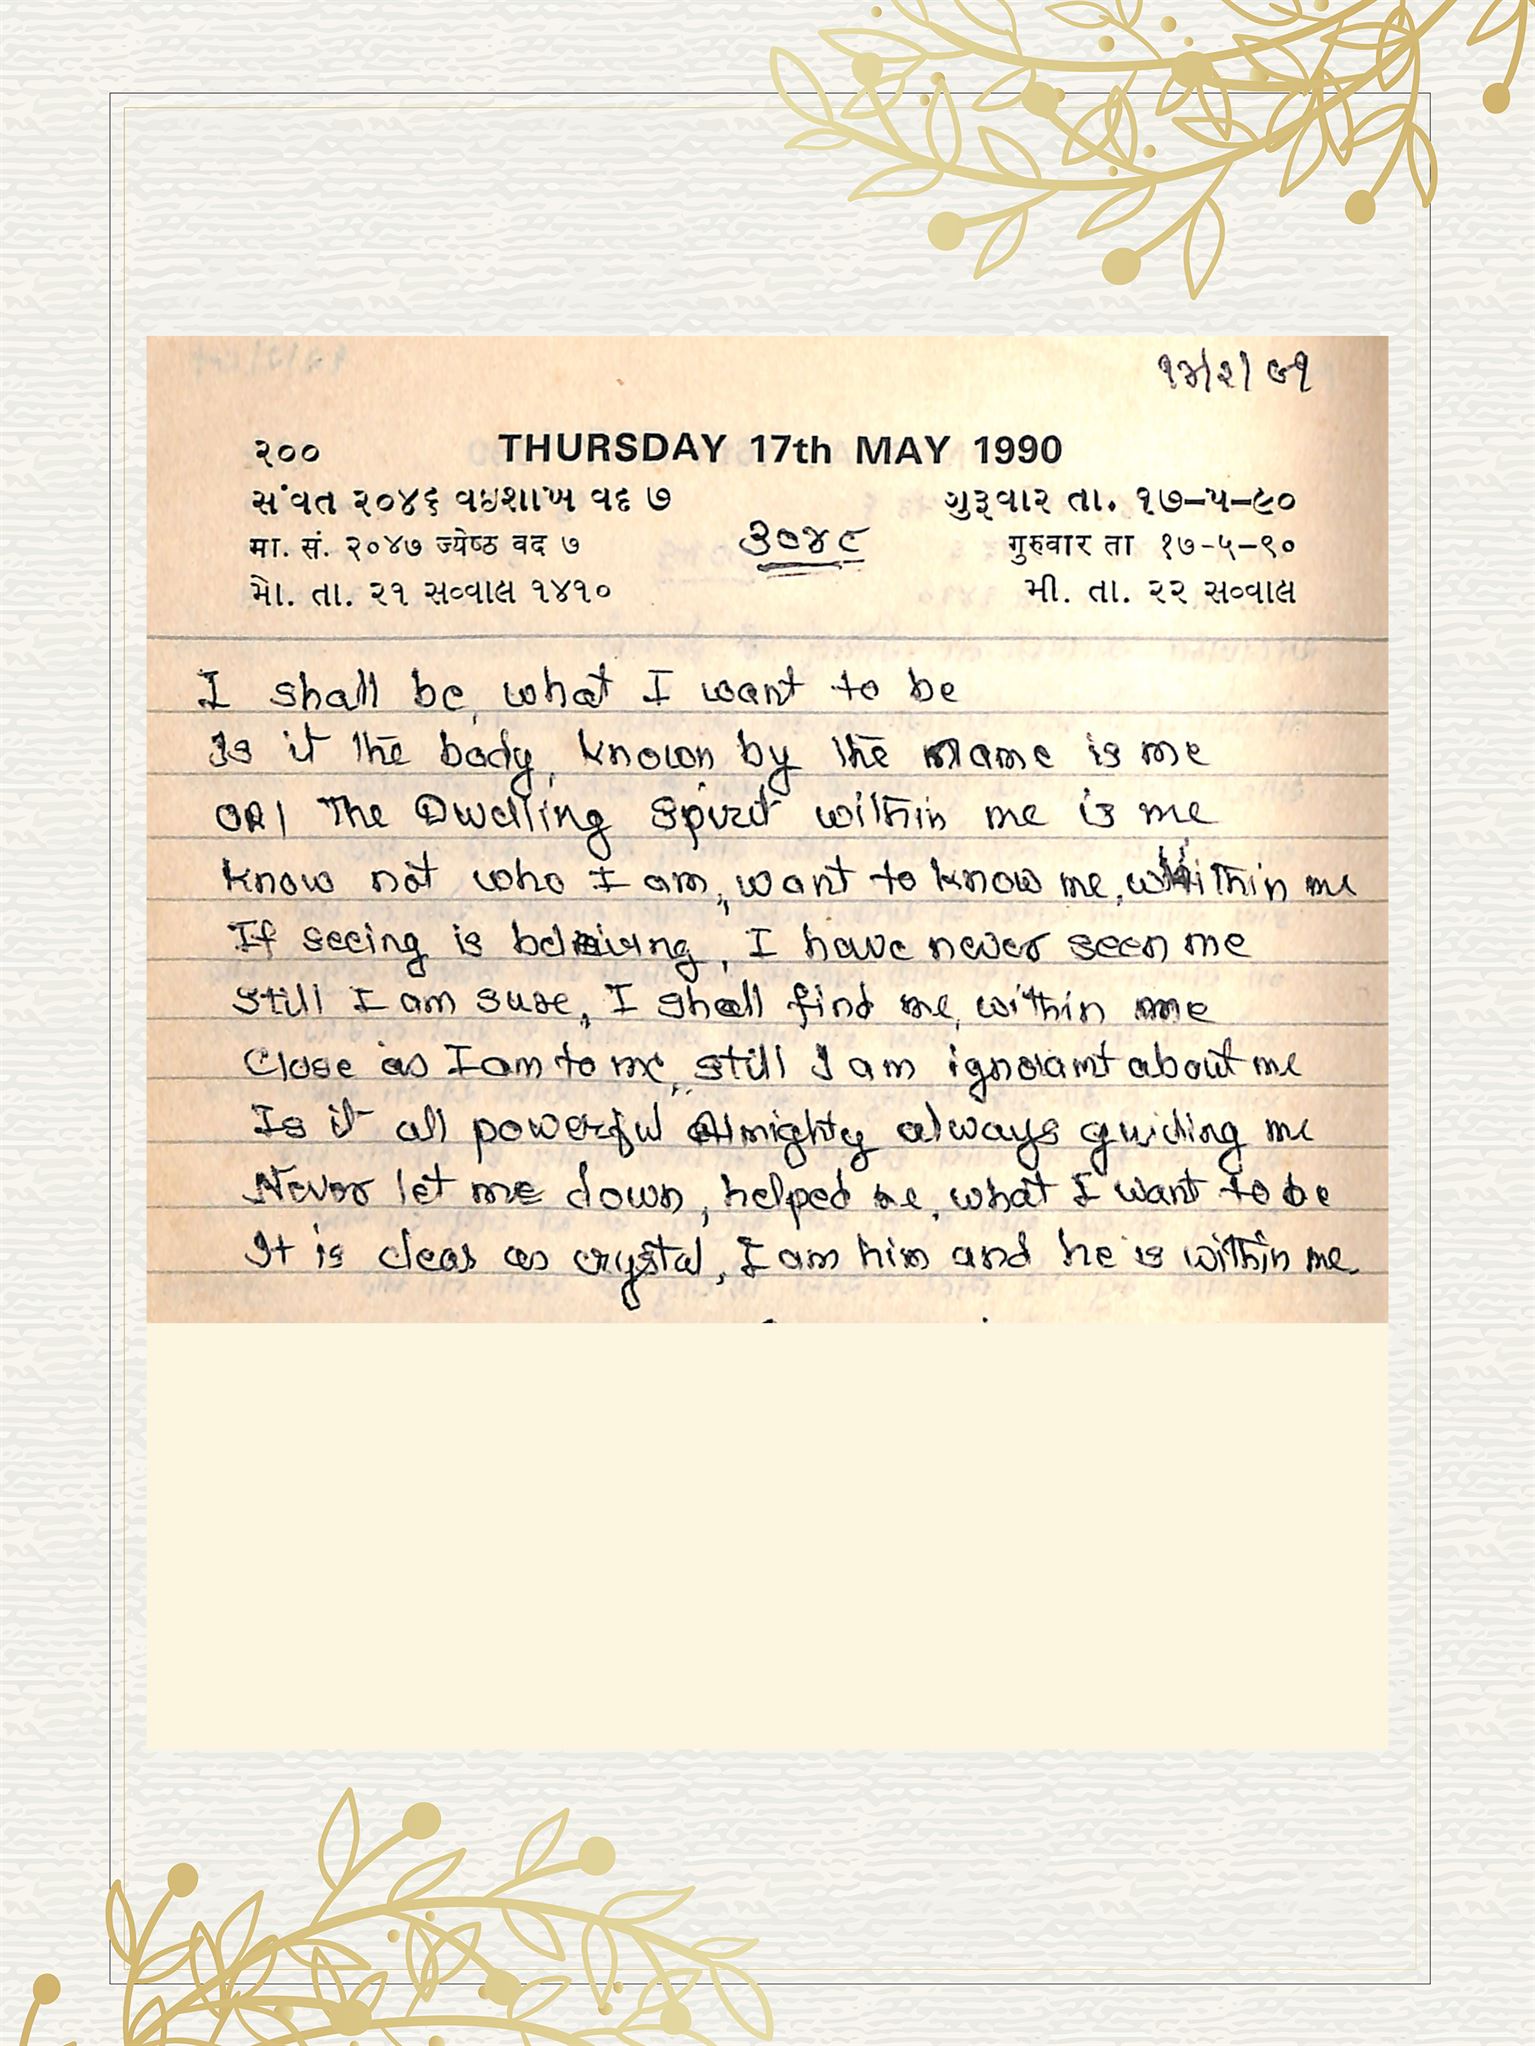 ૧૩/૨/૯૧
૨૦૦ THURSDAY 17th MAY 1990
સંવત ૨૦૪૬ વઇશાખ વદ ૭ ગુરૂવાર તા. ૧૭–૫–૯૦
३०४९
मा. सं. २०४७ ज्येष्ठ वद ७ गुरुवार ता १७-५-९०
મો. તા. ૨૧ સવ્વાલ ૧૪૧૦ મી. તા. ૨૨ સવ્વાલ
I shall be, what I want to be
Is it the body, known by the name is me
OR! The Dwelling spirit within me is me
know not who I am, want to know me, within me
If seeing is believing, I have never seen me
still I am sure, I shall find me, within me
Close as I am to me, still I am ignorant about me
Is it all powerful Almighty always guiding me
Never let me down, helped me, what I want to be
It is clear as crystal, I am him and he is within me.